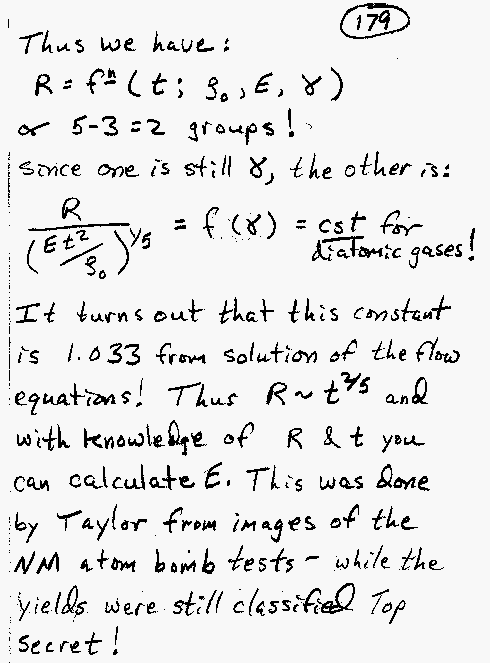 179
Thus we have:
R = fⁿ (t; ρ₀, E, γ)
or 5-3=2 groups!
Since one is still γ, the other is:
R / (Et²/ρ₀)^1/5 = f(γ) = cst for
diatomic gases!
It turns out that this constant
is 1.033 from solution of the flow
equations! Thus R ~ t^2/5 and
with knowledge of R & t you
can calculate E. This was done
by Taylor from images of the
NM atom bomb tests - while the
yields were still classified Top
Secret!